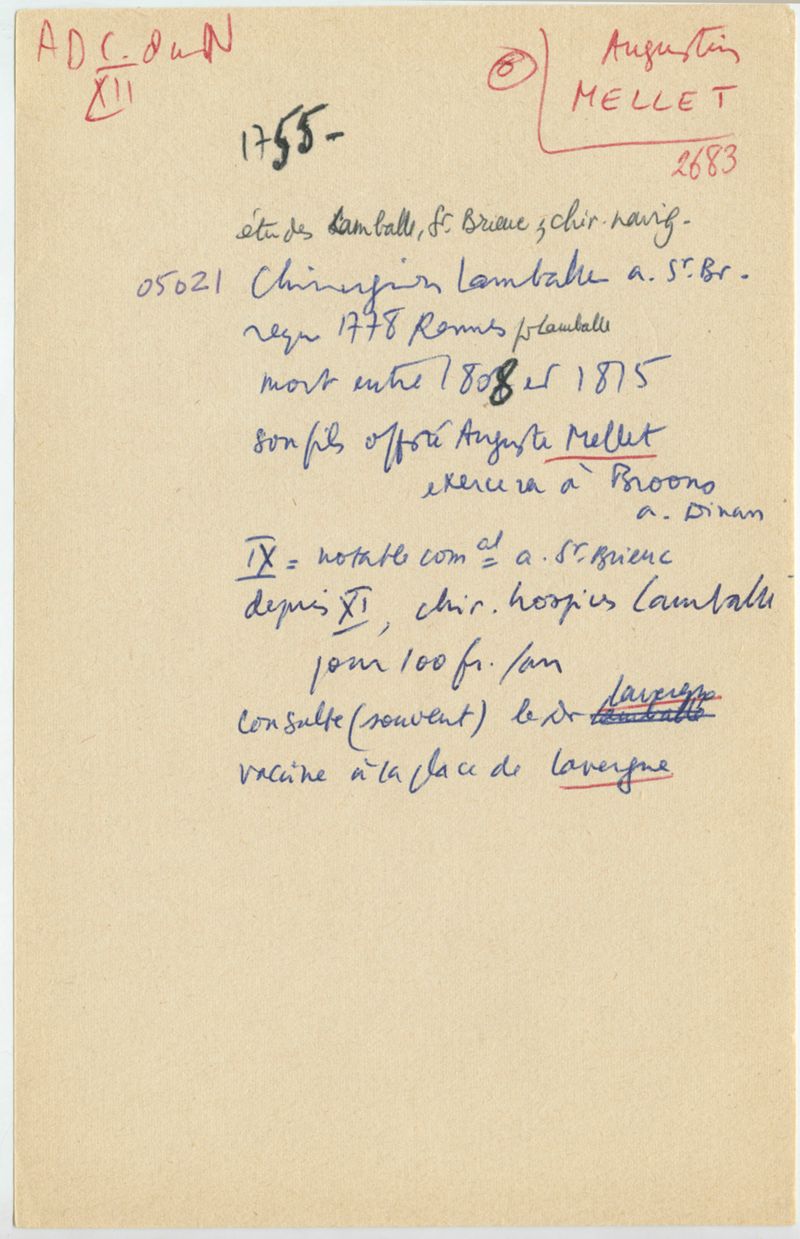 A D C. du N
XII
6
Augustin
MELLET
2683
1755-
études Lamballe, St. Brieuc, chir. navig.
05021 Chirurgien Lamballe a. St Br.
reçu 1778 Rennes pr Lamballe
mort entre 1808 et 1815
son fils offsté Auguste Mellet
exercera à Broons
a. Dinan
IX = notable comal a. St. Brieuc
depuis XI, chir. hospices Lamballe
pour 100 fr. /an
Lavergne
consulte (souvent) le Dr Lamballe
vaccine à la place de Lavergne